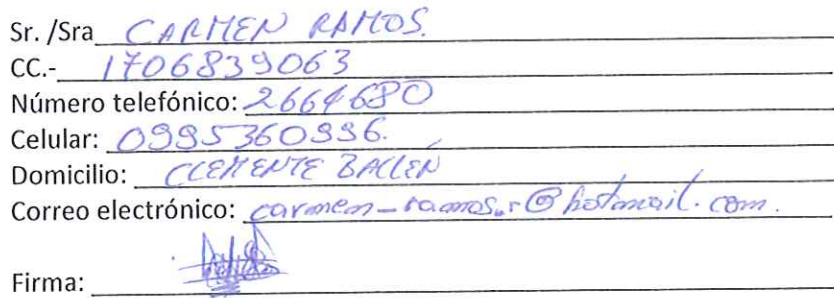 Sr. /Sra CARMEN RAMOS.
CC.- 1706839063
Número telefónico: 2664680
Celular: 0995360996.
Domicilio: CLEMENTE BALLÉN
Correo electrónico: carmen_ramos.r@hotmail.com.
Firma: